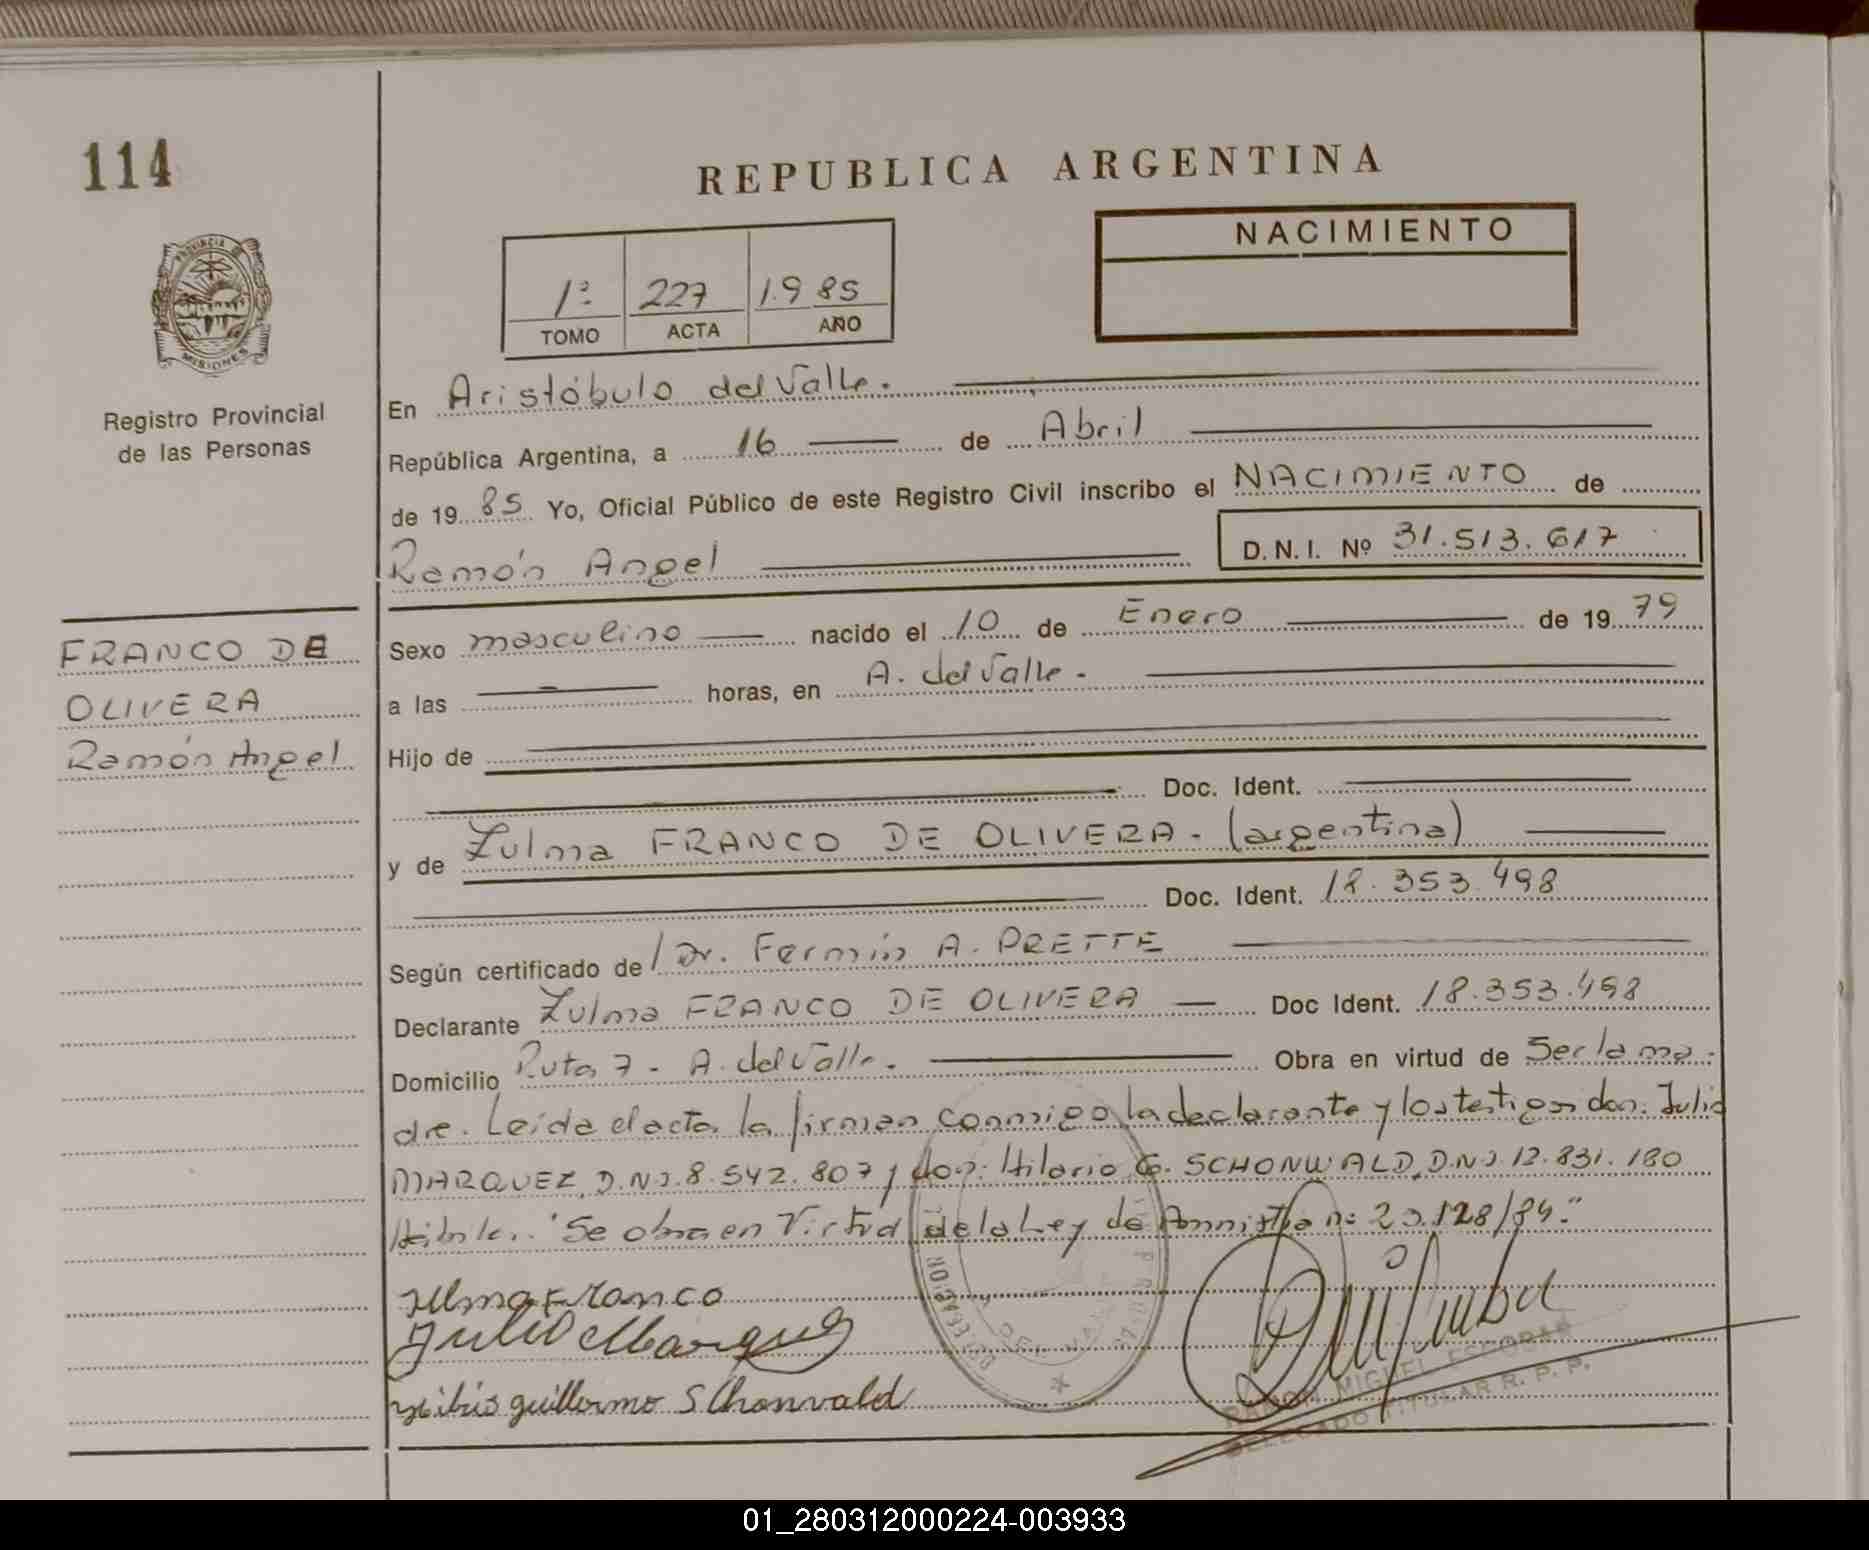 114
REPUBLICA ARGENTINA
PROVINCIA DE
MISIONES
Registro Provincial
de las Personas
1º 227 1.9 85
TOMO ACTA AÑO
NACIMIENTO
En Aristóbulo del Valle.
República Argentina, a 16 de Abril
de 19 85 Yo, Oficial Público de este Registro Civil inscribo el NACIMIENTO de
Ramón Angel D.N.I. Nº 31.513.617
FRANCO DE
OLIVERA
Ramón Angel
Sexo masculino nacido el 10 de Enero de 19 79
a las — horas, en A. del Valle.
Hijo de
Doc. Ident.
y de Zulma FRANCO DE OLIVERA. (argentina)
Doc. Ident. 18.353.498
Según certificado de Dr. Fermín A. PRETTE
Declarante Zulma FRANCO DE OLIVERA Doc Ident. 18.353.498
Domicilio Ruta 7 - A. del Valle. Obra en virtud de Ser la ma-
dre. Leída el acta la firman conmigo la declarante y los testigos don: Julio
MARQUEZ, D.N.I. 8.542.807 y don: Hilario G. SCHONWALD, D.N.I. 12.831.180
"Se obra en Virtud de la Ley de Amnistia nº 23.128/84."
Zulma Franco
Julio Marquez
guillermo SChonvald
RAMON MIGUEL ESCOBAR
DELEGADO TITULAR R. P. P.
01_280312000224-003933